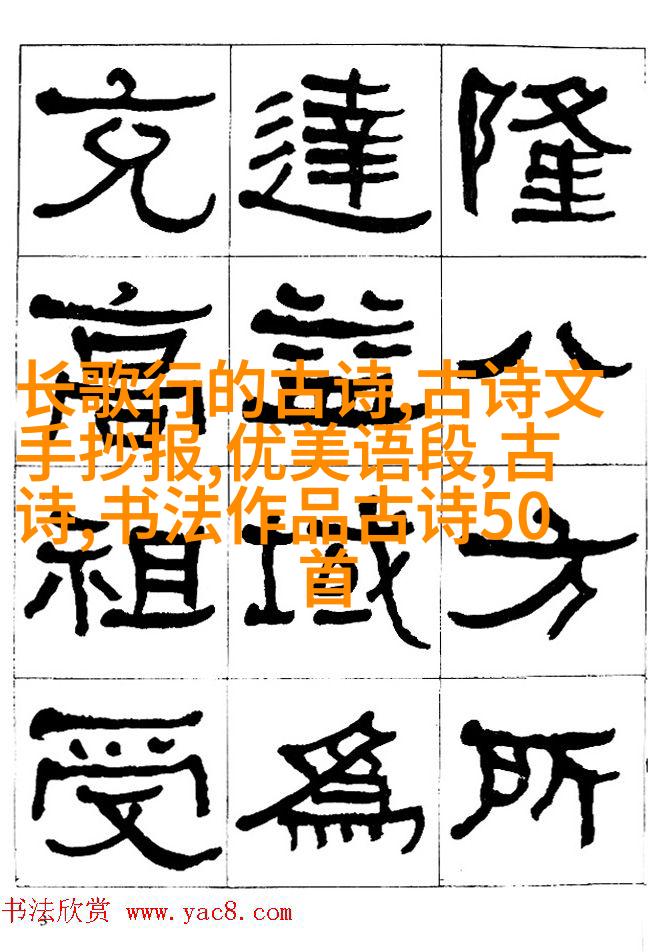 隆八方所
達益域為
充高祖受
长歌行的古诗,古诗文
手抄报,优美语段,古
诗,书法作品古诗50
首
书法欣赏 www.yac8.com